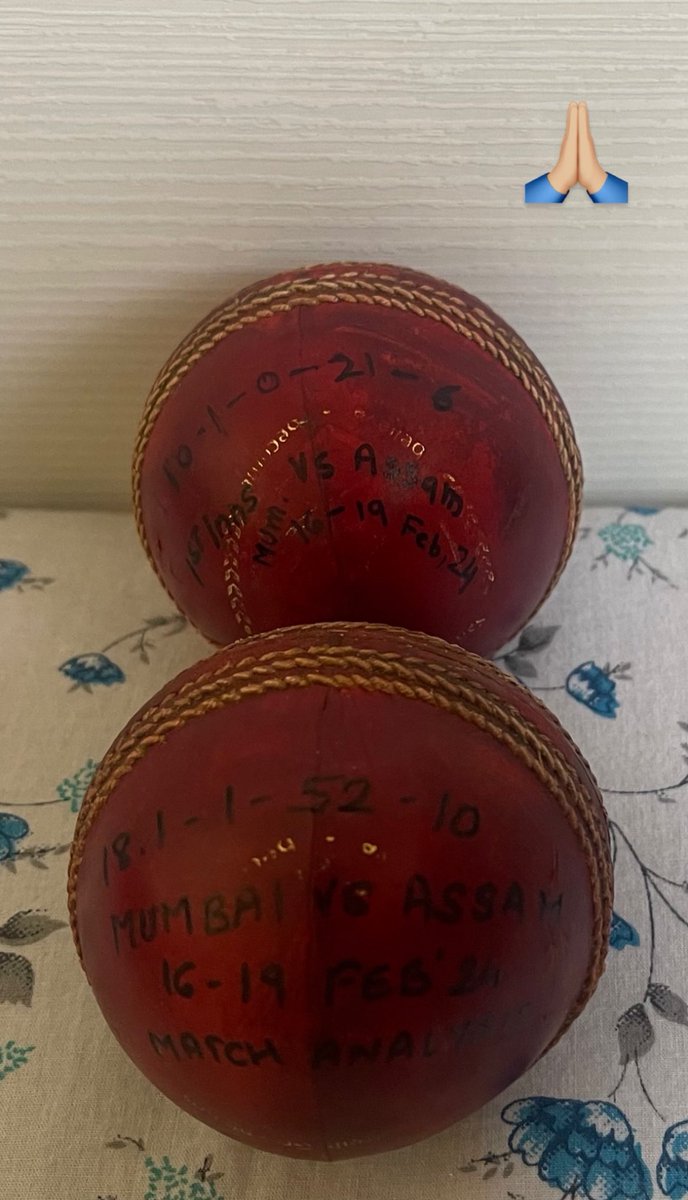 10-1-0-21-6
1st Inns
Mum. vs Assam
16-19 Feb, 24
18.1-1-52-10
MUMBAI VS ASSAM
16-19 FEB'24
MATCH ANALYSIS